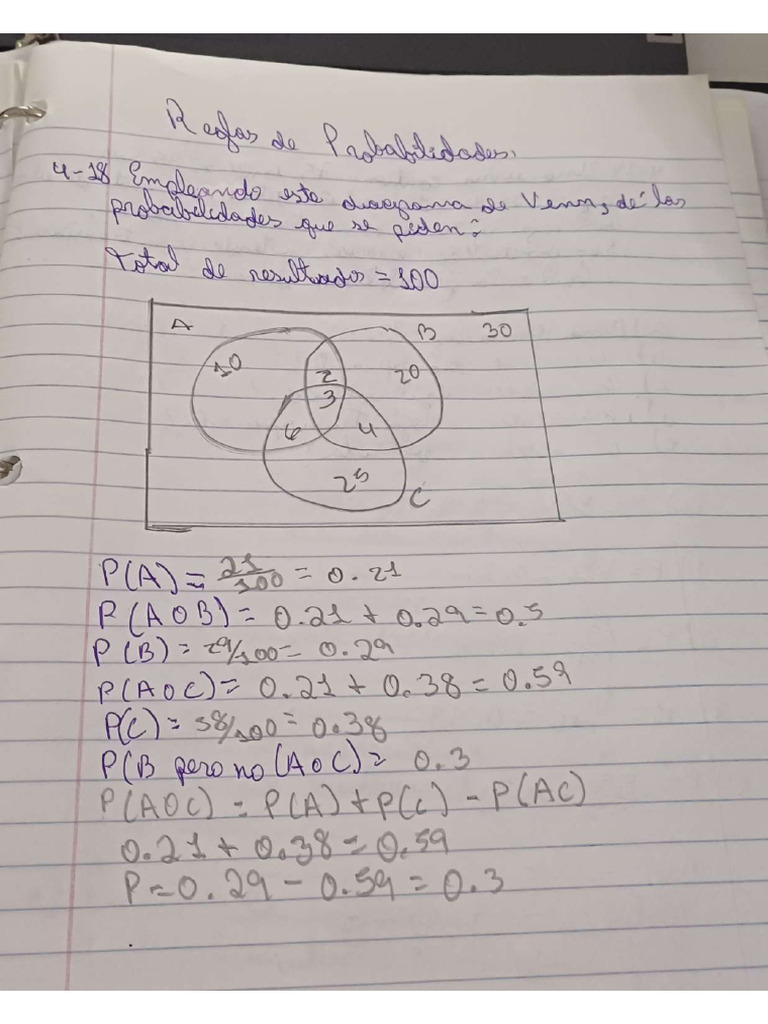 Reglas de Probabilidades.
4-18 Empleando este diagrama de Venn, dé las
probabilidades que se piden:
Total de resultados = 100
A
B
30
10
2
20
3
6
4
25
C
P(A) = 21/100 = 0.21
P(A O B) = 0.21 + 0.29 = 0.5
P(B) = 29/100 = 0.29
P(A O C) = 0.21 + 0.38 = 0.59
P(C) = 38/100 = 0.38
P(B pero no (A o C) = 0.3
P(A O C) = P(A) + P(C) - P(AC)
0.21 + 0.38 = 0.59
P = 0.29 - 0.59 = 0.3